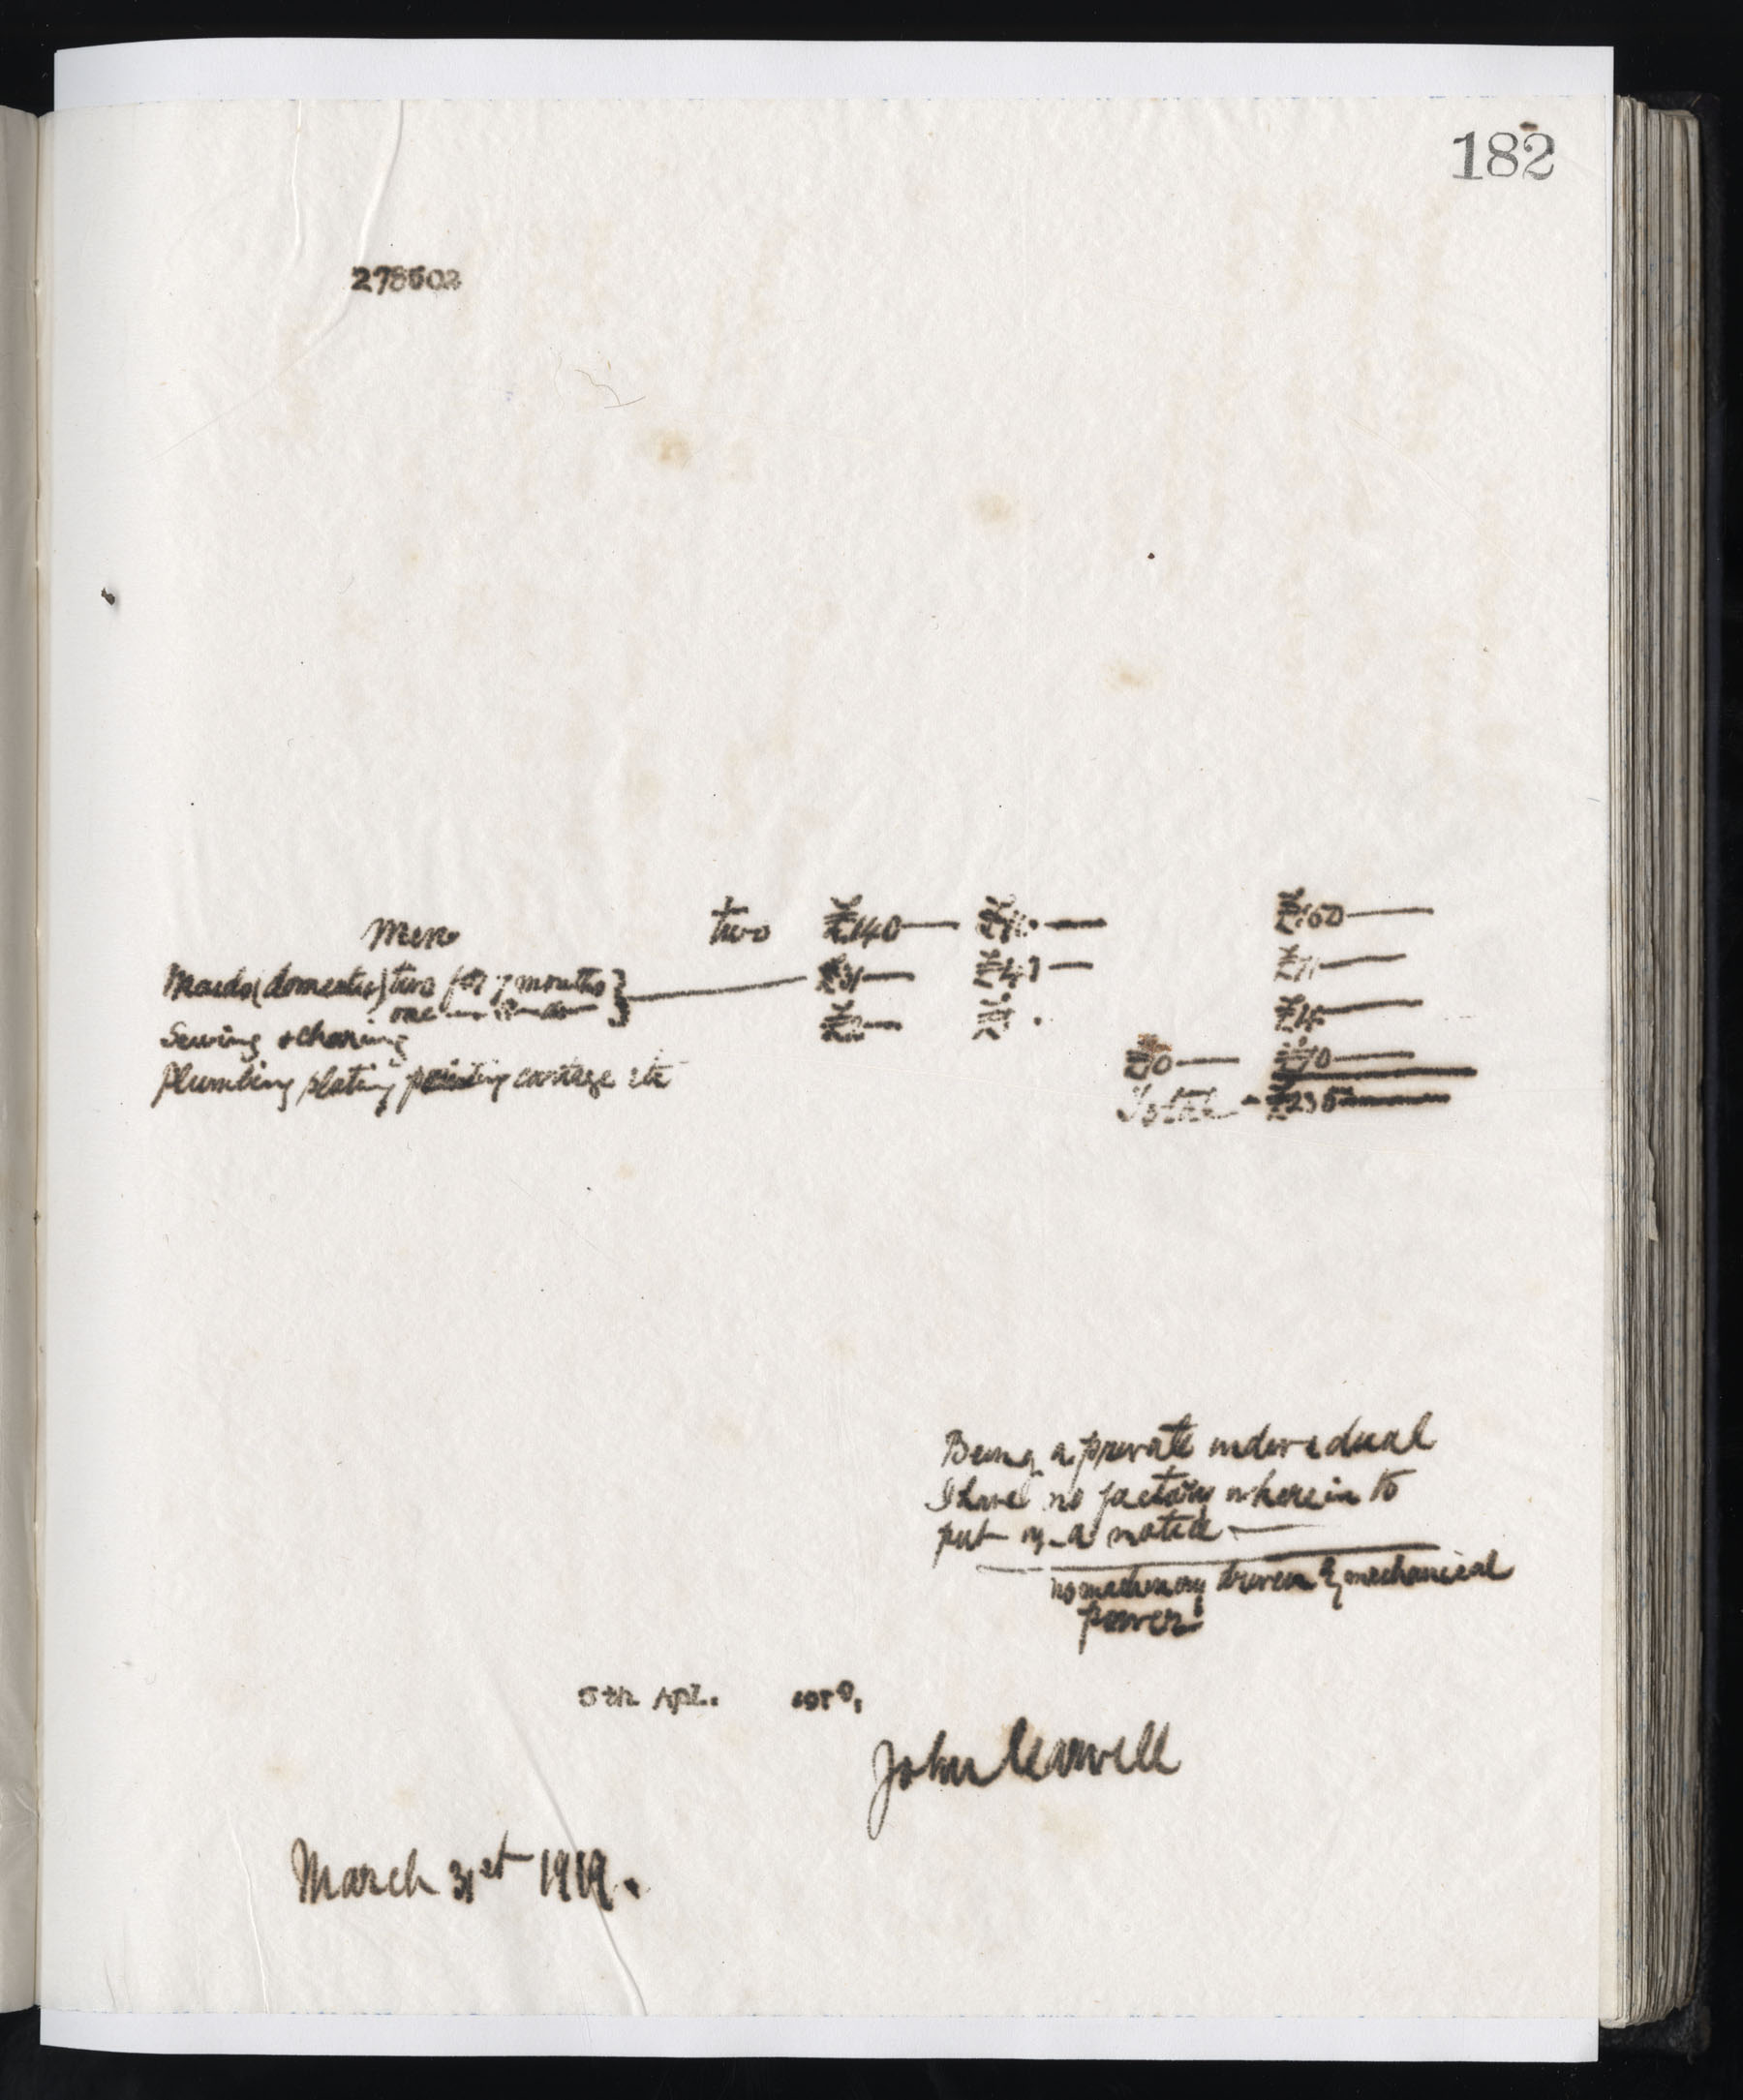 182
278502
Men two £140— £160—
Maids (domestic) two for 7 months} £31— £71—
one
Sewing & charing £2—
Plumbing slating painting cartage etc
£10— £10—
Total - £235
Being a private individual
I have no factory wherein to
put up a notice —
no machinery driven by mechanical
power
5th Apl.
John
March 31st 1919.